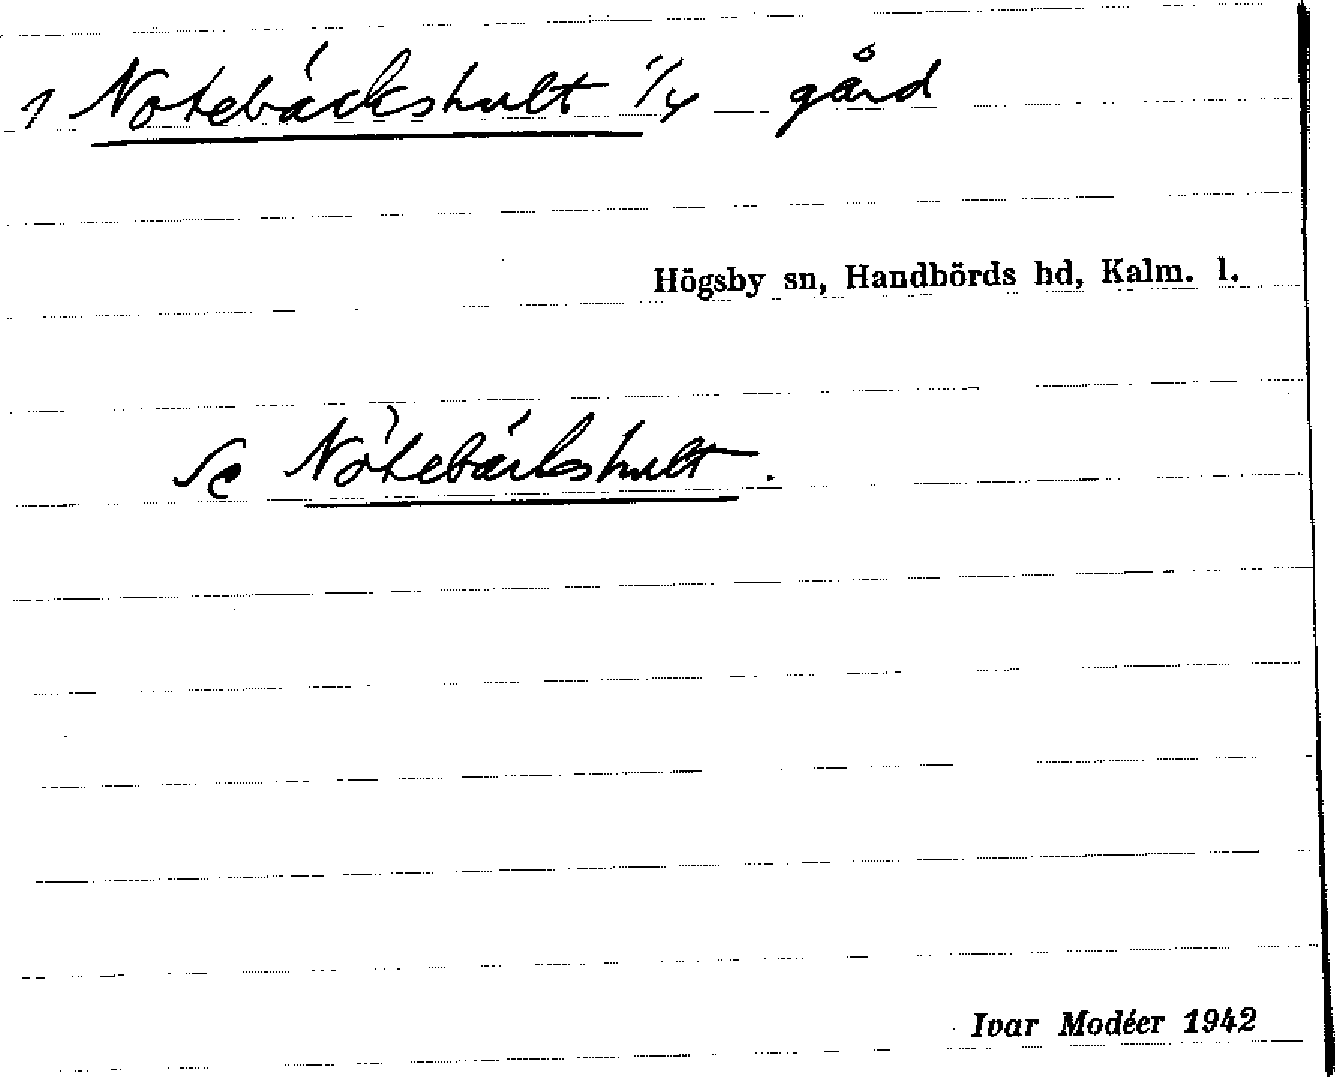 1 Notebäckshult 1/4 gård
Högsby sn, Handbörds hd, Kalm. l.
Se Nötebäckshult.
Ivar Modéer 1942